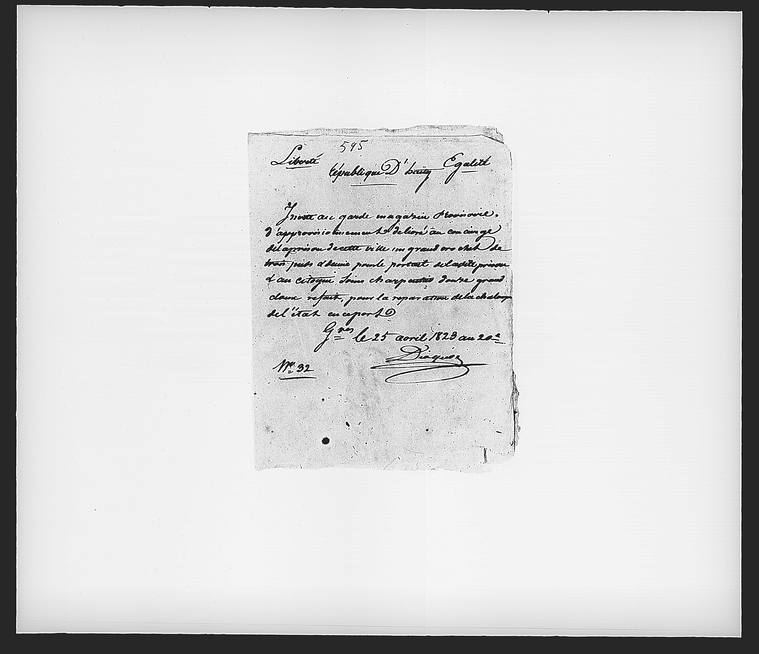 595
Liberté République D'haity Egalité
garde magazin Provisoire
d'approvisionnement delivré au concierge
de la prison de cette ville un grand crochet de
trois pieds & demie pour le portail de la dite prison
& au citoyen charpentier douze grand
cloux refait, pour la reparation de la chaloupe
de l'état en ce port
G.ves le 25 avril 1823 an 20.e
N.o 32